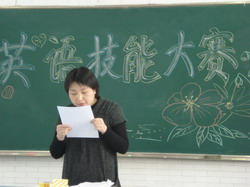 英语技能大赛